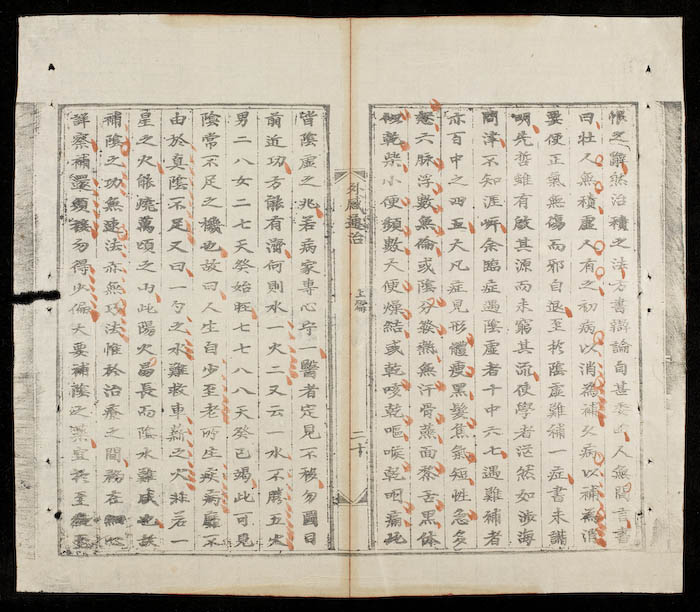 之難然治積之法方書辯論自甚委曲人無間言書
曰壯人無積虛人有之初病以消為補久病以補為消
要使正氣無傷而邪自退至於陰虛難補一症書未講
明先哲雖有啟其源而未窮其流使學者茫然如涉海
問津不知涯涘余臨症遇陰虛者千中六七遇難補者
亦百中之四五大凡症見形體瘦黑髮焦氣短性急多
怒六脉浮數無倫或陰分發熱無汗骨蒸面黎舌黑体
似乾柴小便頻數大便燥結或乾咳乾嘔喉乾咽痛此
外感通治
上篇
二十
皆陰虛之兆若病家專心守一醫者定見不移勿圖目
前近功方能有濟何則水一火二又云一水不勝五火
男二八女二七天癸始旺七七八八天癸已竭此可見
陰常不足之機也故曰人生自少至老所生疾病靡不
由於真陰不足又曰一勺之水難救車薪之火若一
星之火能燒萬頃之山此陽火易長而陰水難成也
補陰之功無速法亦無巧法惟於治療之間務在細心
詳察補還須緩勿得火偏大要補陰之藥宜至至